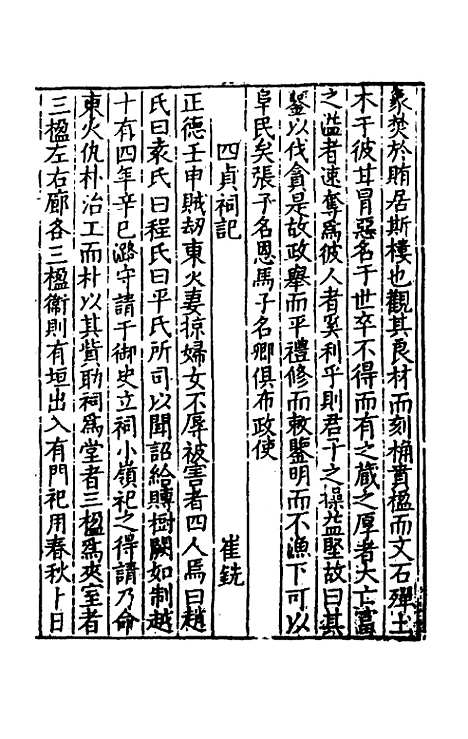 象焚於賄居斯樓也觀其良材而刻桷賁楹而文石殫土
木于彼甘冒惡名于世卒不得而有之藏之厚者大亡富
之溢者速奪爲彼人者奚利乎則君子之操益堅故曰其
鑒以伐貪是故政舉而平禮修而敕鑒明而不漁下可以
阜民矣張子名恩馬子名卿俱布政使
四貞祠記 崔銑
正德壬申賊刼東火妻掠婦女不辱被害者四人焉曰趙
氏曰袁氏曰程氏曰平氏所司以聞詔給賻樹闕如制越
十有四年辛巳潞守請于御史立祠小嶺祀之得請乃命
東火仇朴治工而朴以其貲助祠爲堂者三楹爲夾室者
三楹左右廊各三楹衞則有垣出入有門祀用春秋卜日